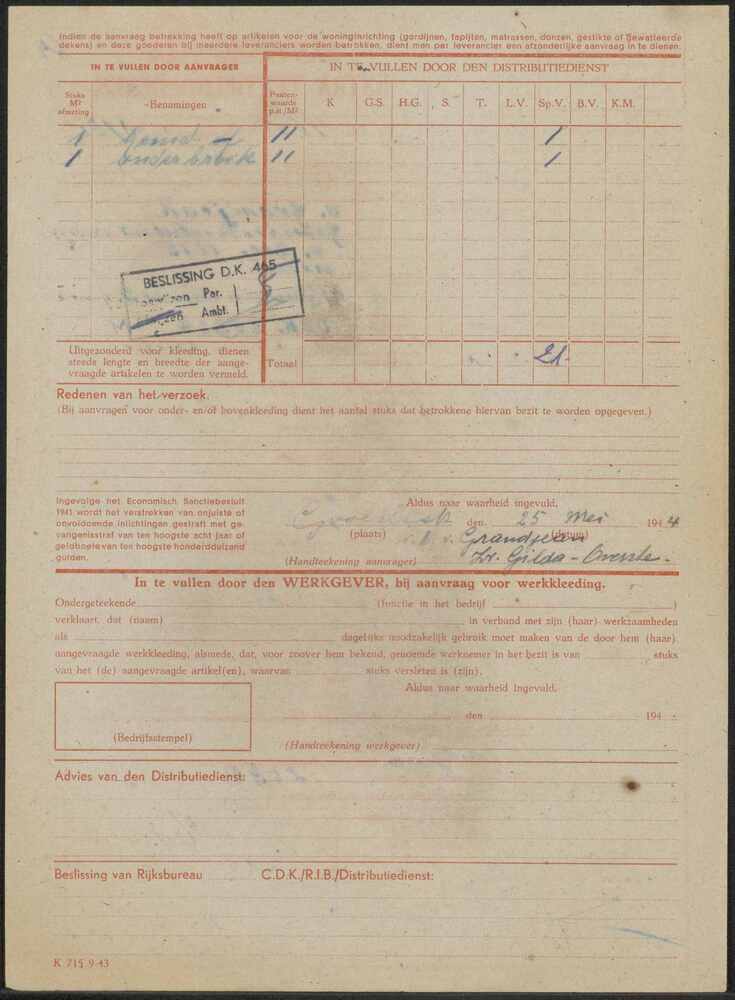 Indien de aanvraag betrekking heeft op artikelen voor de woninginrichting (gordijnen, tapijten, matrassen, donzen, gestikte of gewatteerde
dekens) en deze goederen bij meerdere leveranciers worden betrokken, dient men per leverancier een afzonderlijke aanvraag in te dienen.
IN TE VULLEN DOOR AANVRAGER
IN TE VULLEN DOOR DEN DISTRIBUTIEDIENST
Stuks M² afmeting
Benamingen
Punten- waarde p.st./M²
K G.S. H.G. S. T. L.V. Sp.V. B.V. K.M.
1 hemd 11 1
1 onderbroek 11 1
BESLISSING D.K. 465
Par. 8
Ambt.
Uitgezonderd voor kleeding, dienen
steeds lengte en breedte der aange-
vraagde artikelen te worden vermeld.
Totaal
21
Redenen van het verzoek.
(Bij aanvragen voor onder- en/of bovenkleeding dient het aantal stuks dat betrokkene hiervan bezit te worden opgegeven.)
Ingevolge het Economisch Sanctiebesluit
1941 wordt het verstrekken van onjuiste of
onvolledende inlichtingen gestraft met ge-
vangenisstraf van ten hoogste acht jaar of
geldboete van ten hoogste honderdduizend
gulden.
Aldus naar waarheid ingevuld,
den 25 Mei 1944
(plaats)
(datum)
Grandjean
(Handteekening aanvrager)
Zr. Gilda - Overste -
In te vullen door den WERKGEVER, bij aanvraag voor werkkleeding.
Ondergeteekende (functie in het bedrijf )
verklaart, dat (naam) in verband met zijn (haar) werkzaamheden
als dagelijks noodzakelijk gebruik moet maken van de door hem (haar)
aangevraagde werkkleeding, alsmede, dat, voor zoover hem bekend, genoemde werknemer in het bezit is van stuks
van het (de) aangevraagde artikel(en), waarvan stuks versleten is (zijn).
Aldus naar waarheid ingevuld,
den 194
(Bedrijfsstempel)
(Handteekening werkgever)
Advies van den Distributiedienst:
Beslissing van Rijksbureau C.D.K./R.I.B./Distributiedienst:
K 715 9-43